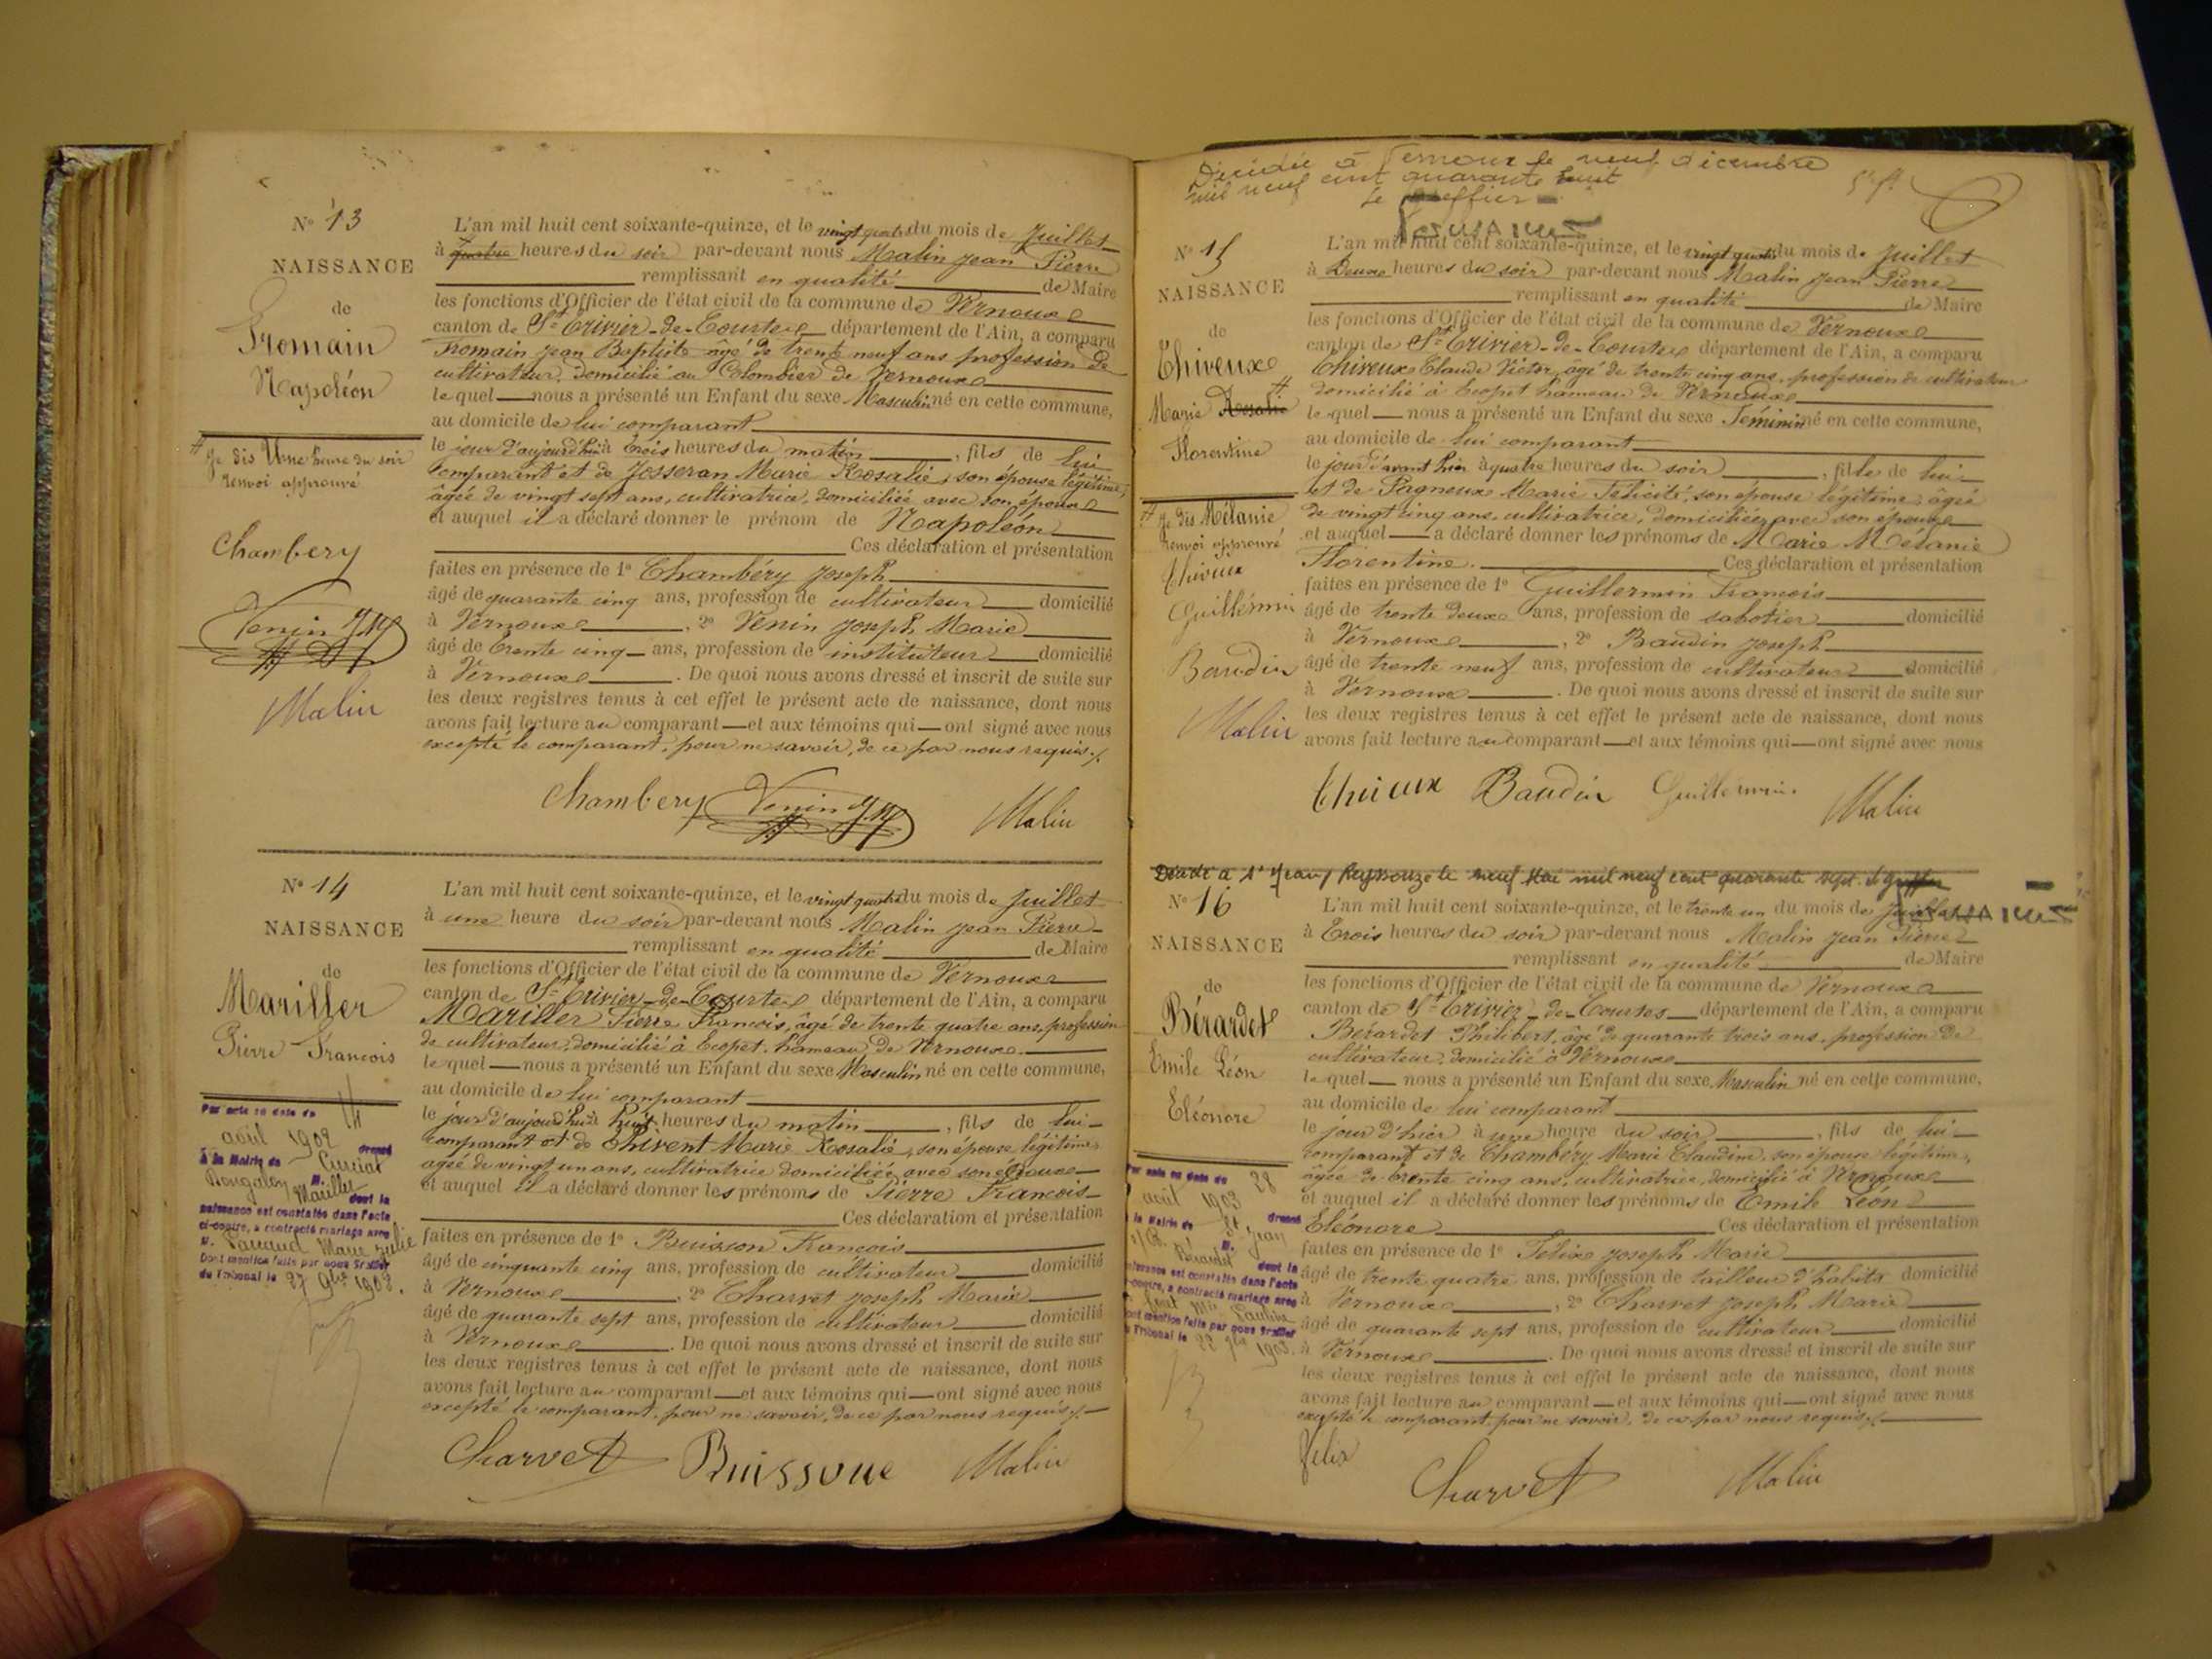 N° 13
NAISSANCE
de
Fromain
Napoléon
# Je dis Une heure du soir
renvoi approuvé
Chambery
Venin J M
Malin
L'an mil huit cent soixante-quinze, et le vingt quatre du mois de Juillet
à quatre heures du soir par-devant nous Malin Jean Pierre
remplissant en qualité de Maire
les fonctions d'Officier de l'état civil de la commune de Vernoux
canton de St Trivier-de-Courtes département de l'Ain, a comparu
Fromain Jean Baptiste âgé de trente neuf ans profession de
cultivateur, domicilié au Colombier de Vernoux
le quel nous a présenté un Enfant du sexe Masculin né en cette commune,
au domicile de lui comparant
le jour d'aujourd'hui à trois heures du matin, fils de lui
comparant et de Josseran Marie Rosalie, son épouse légitime,
âgée de vingt sept ans, cultivatrice, domiciliée avec son époux
et auquel il a déclaré donner le prénom de Napoléon
Ces déclaration et présentation
faites en présence de 1° Chambéry Joseph
âgé de quarante cinq ans, profession de cultivateur domicilié
à Vernoux, 2° Venin Joseph Marie
âgé de trente cinq ans, profession de instituteur domicilié
à Vernoux. De quoi nous avons dressé et inscrit de suite sur
les deux registres tenus à cet effet le présent acte de naissance, dont nous
avons fait lecture au comparant et aux témoins qui ont signé avec nous
excepté le comparant, pour ne savoir, de ce par nous requis./.
Chambery Venin J M Malin
N° 14
NAISSANCE
de
Mariller
Pierre François
Par acte en date du 14
août 1902 dressé
à la Mairie de Curciat
Dongalon M.
Mariller dont la
naissance est constatée dans l'acte
ci-contre, a contracté mariage avec
M. Marie Julie
Dont mention faite par nous Greffier
du Tribunal le 27 9bre 1902.
L'an mil huit cent soixante-quinze, et le vingt quatre du mois de Juillet
à une heure du soir par-devant nous Malin Jean Pierre
remplissant en qualité de Maire
les fonctions d'Officier de l'état civil de la commune de Vernoux
canton de St Trivier-de-Courtes département de l'Ain, a comparu
Mariller Pierre François, âgé de trente quatre ans, profession
de cultivateur, domicilié à Ecopet, hameau de Vernoux
le quel nous a présenté un Enfant du sexe Masculin né en cette commune,
au domicile de lui comparant
le jour d'aujourd'hui à huit heures du matin, fils de lui
comparant et de Thivent Marie Rosalie, son épouse légitime,
agée de vingt un ans, cultivatrice domiciliée avec son époux
et auquel il a déclaré donner les prénoms de Pierre François
Ces déclaration et présentation
faites en présence de 1° Buisson François
âgé de cinquante cinq ans, profession de cultivateur domicilié
à Vernoux, 2° Charvet Joseph Marie
âgé de quarante sept ans, profession de cultivateur domicilié
à Vernoux. De quoi nous avons dressé et inscrit de suite sur
les deux registres tenus à cet effet le présent acte de naissance, dont nous
avons fait lecture au comparant et aux témoins qui ont signé avec nous
excepté le comparant, pour ne savoir, de ce par nous requis./.
Charvet Buissone Malin
Décédée à Vernoux le neuf décembre
mil neuf cent quarante huit
Le greffier
N° 15
NAISSANCE
de
Thiveux
Marie Rosalie #
Florentine
# Je dis Mélanie
renvoi approuvé
Thiveux
Guillermin
Baudin
Malin
L'an mil huit cent soixante-quinze, et le vingt quatre du mois de Juillet
à Deux heures du soir par-devant nous Malin Jean Pierre
remplissant en qualité de Maire
les fonctions d'Officier de l'état civil de la commune de Vernoux
canton de St Trivier-de-Courtes département de l'Ain, a comparu
Thiveux Claude Victor, âgé de trente cinq ans, profession de cultivateur
domicilié à Ecopet hameau de Vernoux
le quel nous a présenté un Enfant du sexe Féminin né en cette commune,
au domicile de lui comparant
le jour d'avant hier à quatre heures du soir, fille de lui
et de Pagneux Marie Félicité, son épouse légitime, âgée
de vingt cinq ans, cultivatrice, domiciliée avec son époux
et auquel a déclaré donner les prénoms de Marie Mélanie
Florentine. Ces déclaration et présentation
faites en présence de 1° Guillermin François
âgé de trente deux ans, profession de sabotier domicilié
à Vernoux, 2° Baudin Joseph
âgé de trente neuf ans, profession de cultivateur domicilié
à Vernoux. De quoi nous avons dressé et inscrit de suite sur
les deux registres tenus à cet effet le présent acte de naissance, dont nous
avons fait lecture au comparant et aux témoins qui ont signé avec nous
Thiveux Baudin Guillermin Malin
Décédé à St Jean / Reyssouze le neuf Mai mil neuf cent quarante sept. Le Greffier
N° 16
NAISSANCE
de
Bérardet
Emile Léon
Eléonore
Par acte en date du 28
août 1903 dressé
à la Mairie de St Jean
s/R. M.
Bérardet dont la
naissance est constatée dans l'acte
ci-contre, a contracté mariage avec
Mie Pauline
Dont mention faite par nous Greffier
du Tribunal le 22 1903.
L'an mil huit cent soixante-quinze, et le trente un du mois de Juillet
à Trois heures du soir par-devant nous Malin Jean Pierre
remplissant en qualité de Maire
les fonctions d'Officier de l'état civil de la commune de Vernoux
canton de St Trivier-de-Courtes département de l'Ain, a comparu
Bérardet Philibert, âgé de quarante trois ans, profession de
cultivateur, domicilié à Vernoux
le quel nous a présenté un Enfant du sexe Masculin né en cette commune,
au domicile de lui comparant
le jour d'hier à une heure du soir, fils de lui
comparant et de Chambéry Marie Claudine, son épouse légitime,
âgée de trente cinq ans, cultivatrice, domicilié à Vernoux
et auquel il a déclaré donner les prénoms de Emile Léon
Eléonore Ces déclaration et présentation
faites en présence de 1° Félix Joseph Marie
âgé de trente quatre ans, profession de tailleur d'habits domicilié
à Vernoux, 2° Charvet Joseph Marie
âgé de quarante sept ans, profession de cultivateur domicilié
à Vernoux. De quoi nous avons dressé et inscrit de suite sur
les deux registres tenus à cet effet le présent acte de naissance, dont nous
avons fait lecture au comparant et aux témoins qui ont signé avec nous
excepté le comparant, pour ne savoir, de ce par nous requis./.
Félix Charvet Malin